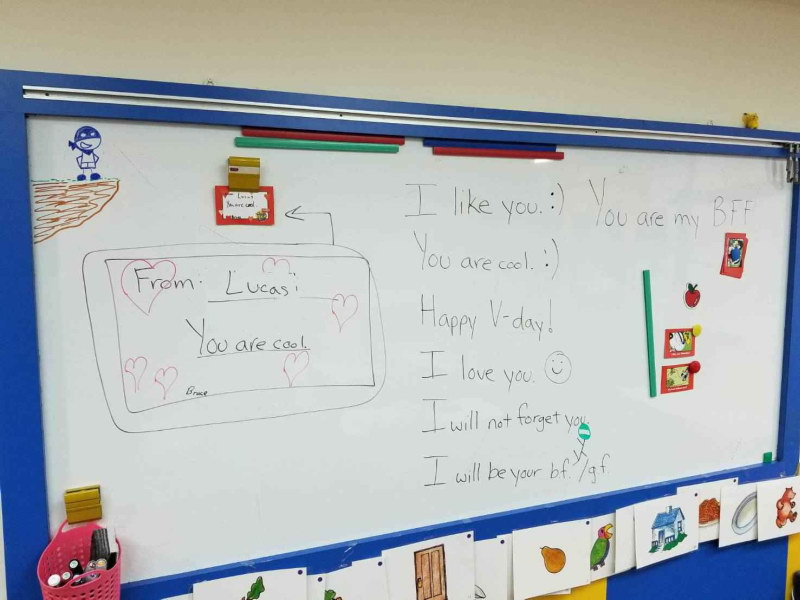 Lucas!
You are cool
From: Lucas!
You are cool.
Bruce
I like you. :)
You are my BFF
You are cool. :)
Happy V-day!
I love you.
I will not forget you.
I will be your bf./gf.